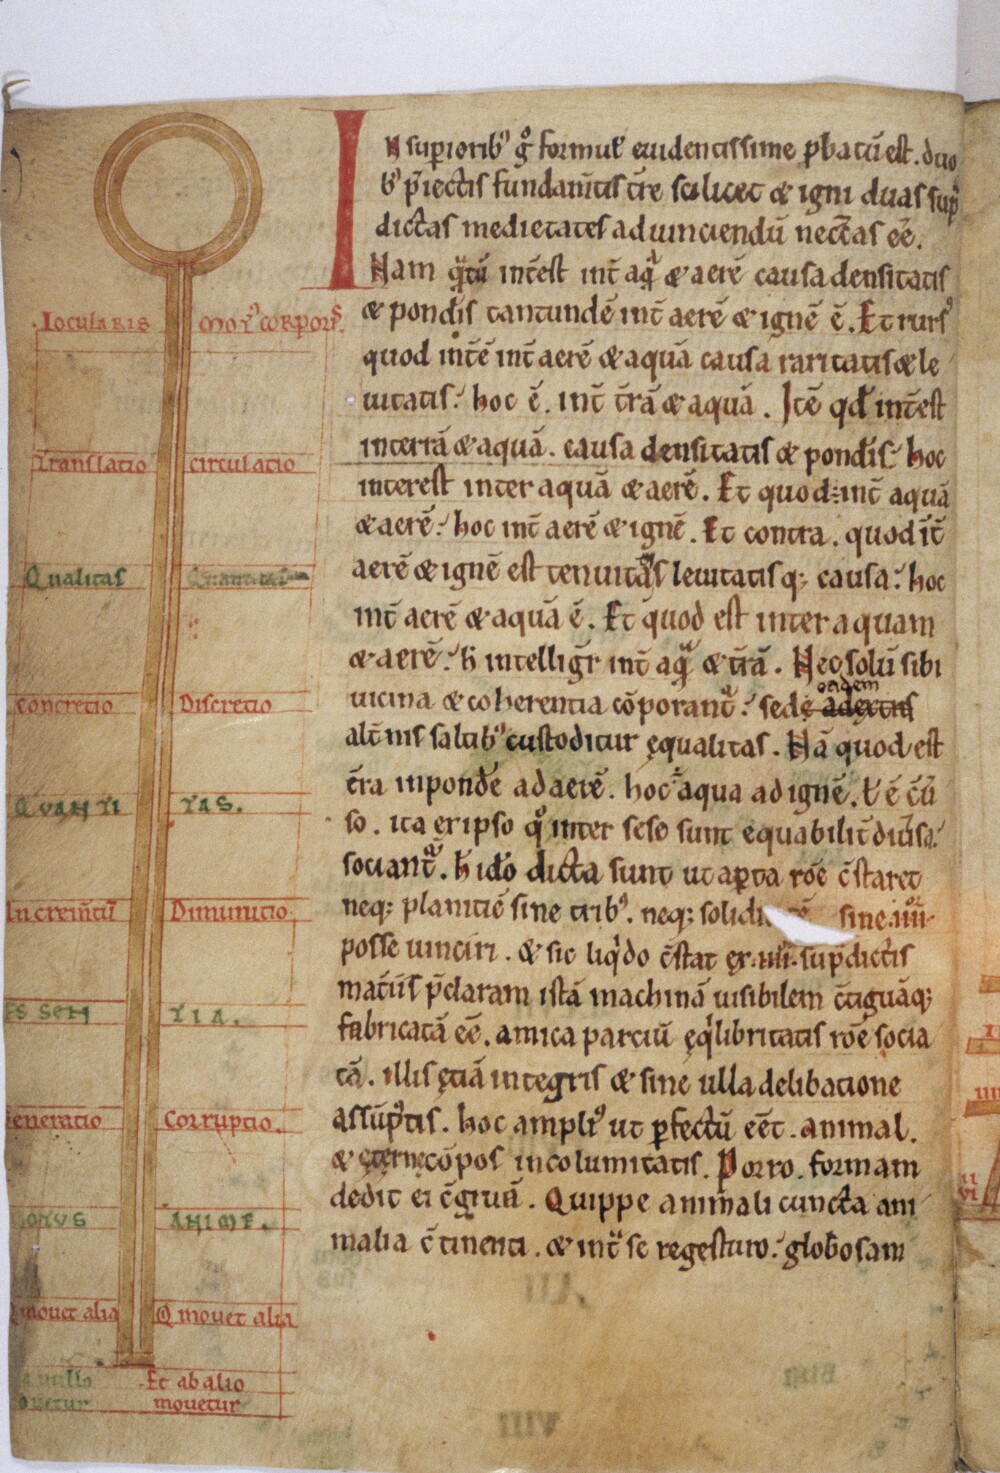 Jocularis Mot᾿ corporis.
Translatio circulatio
Qualitas Quantitas
concretio Discretio
QVANTI TAS.
Increm̄tū Diminutio
ESSEN TIA.
eneratio Corruptio.
MOTVS ANIME.
Q movet alia Q movet alia
a nullo Et ab alio
ovetur movetur
IN superiorib᾿ gͦ formul᾿ euidentissime ꝓbatū est. duo
b᾿ p̄iectis fundam̄tis t̄re scilicet & igni duas sup̄
dictas medietates ad uinciendū nec̄cas eē.
Nam q̄tū int̄est int̄ aq̄ & aerē causa densitatis
& pond̄is tantundē int̄ aerē & ignē ē. Et rurs᾿
quod int̄ē int̄ aerē & aquā causa raritatis & le
uitatis. hoc ē. int̄ t̄rā & aquā. Itē qd̄ int̄est
int̄ terrā & aquā. causa densitatis & pond̄is. hoc
interest inter aquā & aerē. Et quod int̄ aquā
& aerē. hoc int̄ aerē & ignē. Et contra. quod īt̄
aerē & ignē est tenuitatis leuitatisq; causa. hoc
int̄ aerē & aquā ē. Et quod est inter aquam
& aerē. h̄ intelligr̄ int̄ aq̄ & t̄rā. Nec solū sibi
eadem
uicina & coherentia cōporant᾿. sed ę
alt̄nis saltib᾿ custoditur ęqualitas. Nā quod est
t̄ra in pond̄e ad aerē. hoc aqua ad ignē. ē
so. ita ex ipso qͦ inter sese sunt equabilit̄ diūsa.
sociant᾿. h̄ ido dicta sunt ut ap̄ta rōe c̄staret
neq; planitiē sine trib᾿. neq; solidi sine .iiii.
posse uinciri. & sic liqdo c̄stat ex .iiii. sup̄dictis
mat̄iis p̄claram istā machinā uisibilem c̄tiguāq;
fabricatā eē. amica parciū ęqlibritatis rōe socia
tā. illis ęciā integris & sine ulla delibatione
assūptis. hoc ampli᾿ ut ꝑfectū eēt. animal.
& cōpos incolumitatis. Porro. formam
dedit ei c̄gruā. Quippe animali cuncta ani
malia c̄tinenti. & int̄ se regesturo. globosam